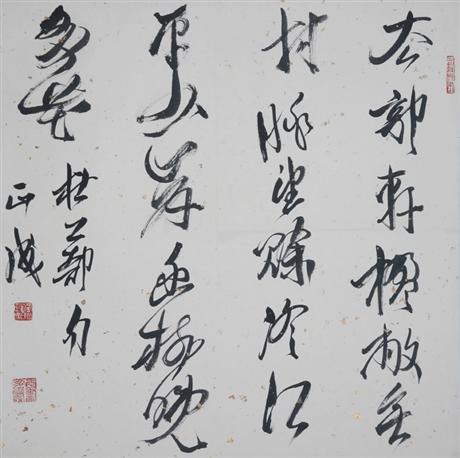 去郭軒楹敞無
村眺望賒澄江
平少岸幽樹晚
多花
杜工部句
正成